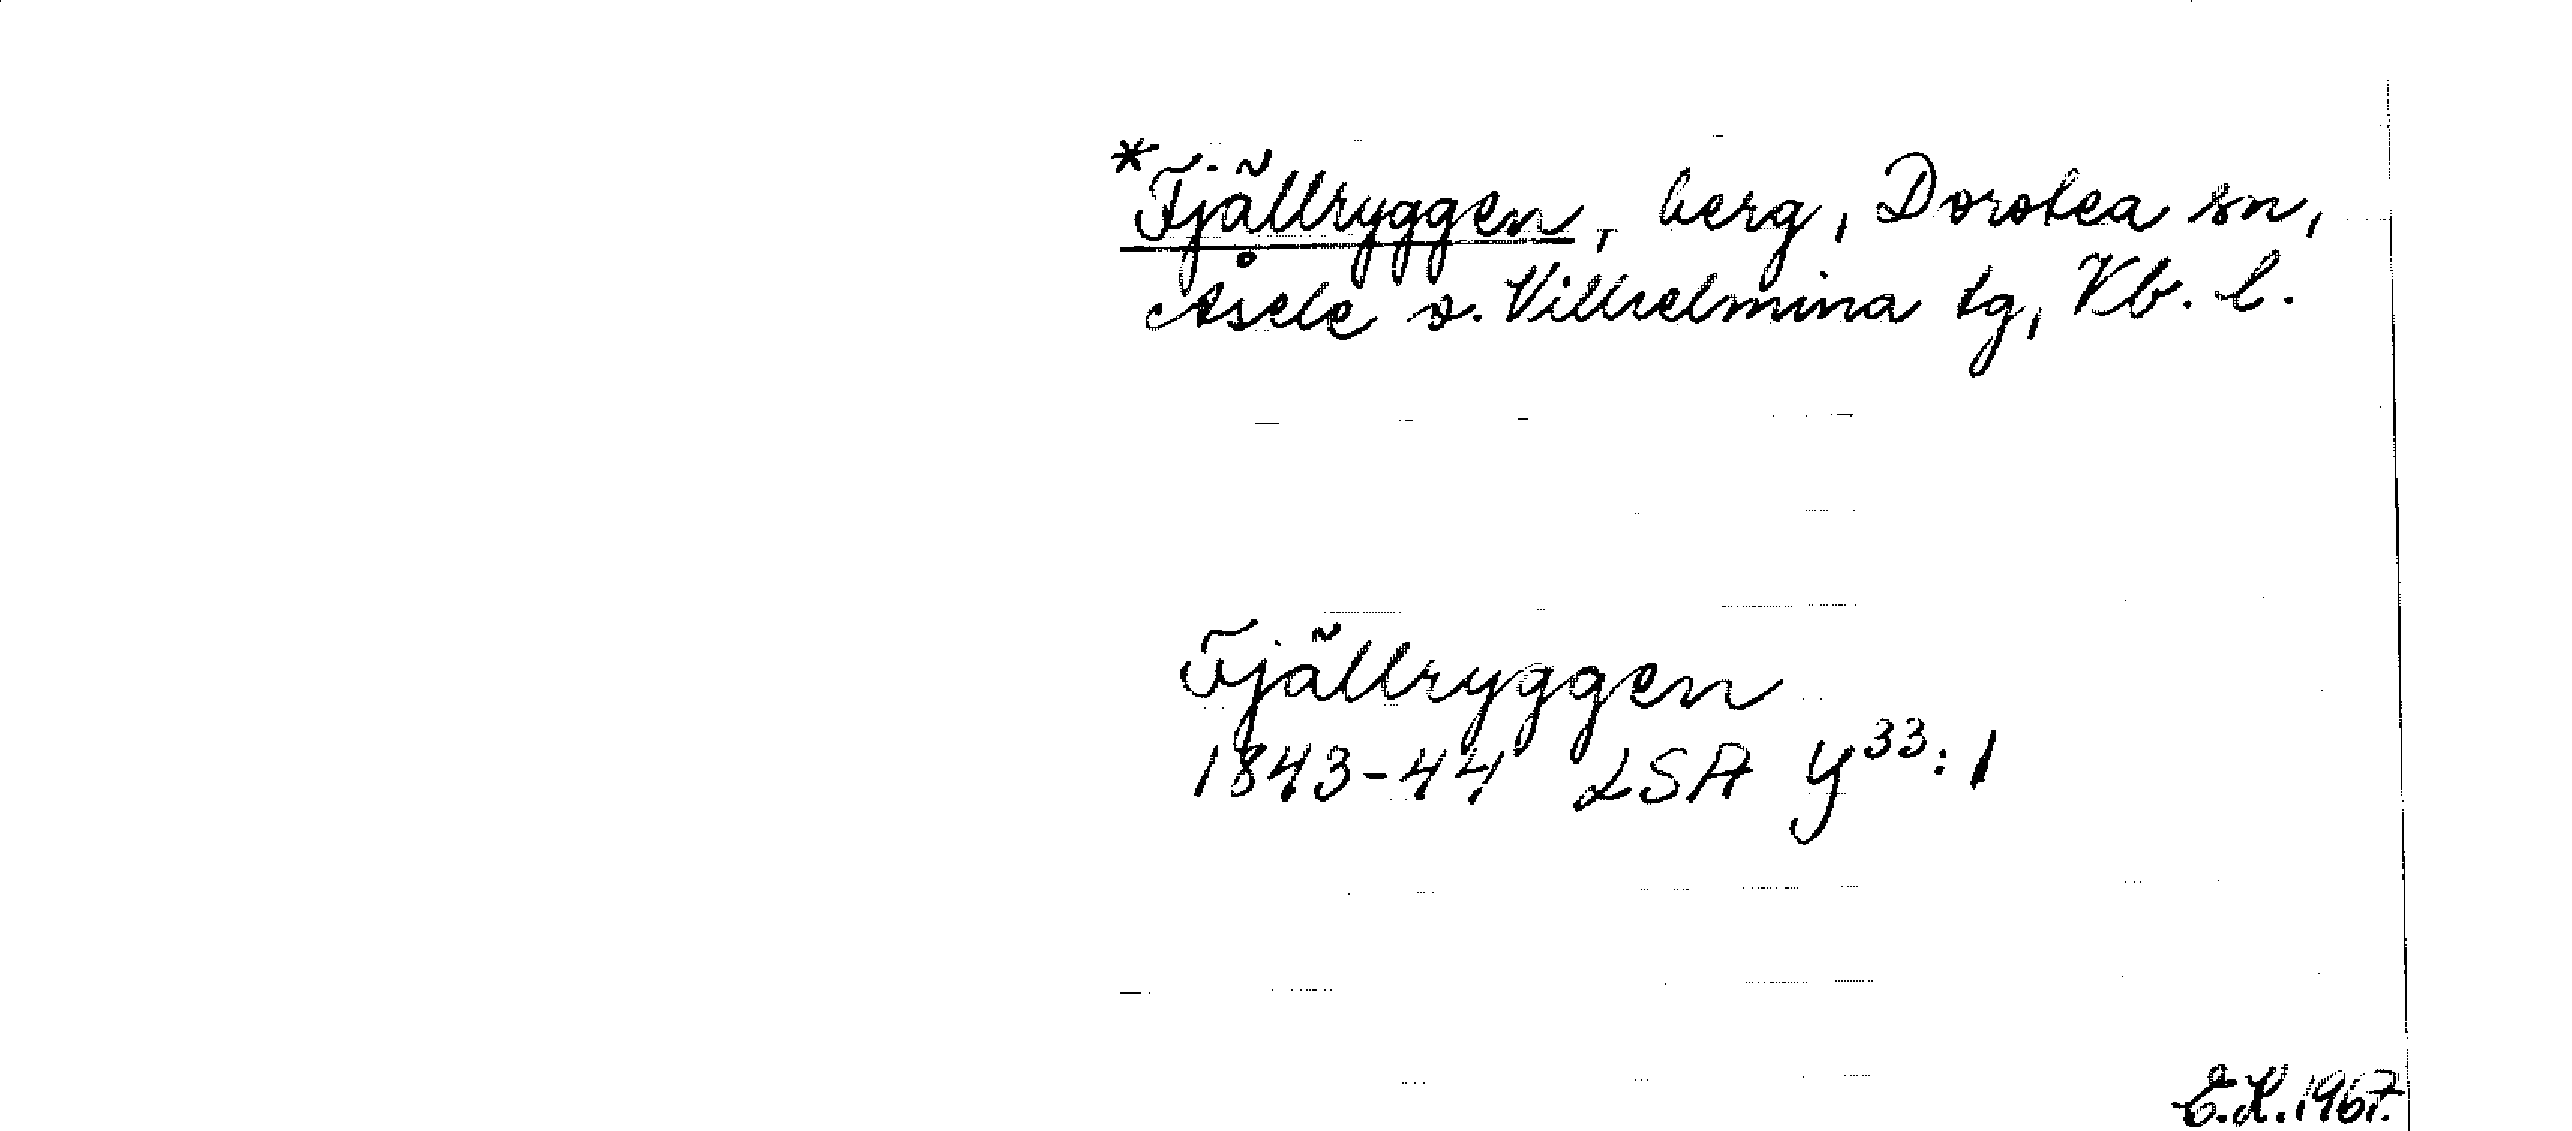 *Fjällryggen, berg, Dorotea sn,
Åsele o. Vilhelmina tg, Vb. l.
Fjällryggen
1843-44 LSA Y33:1
E.H. 1967.